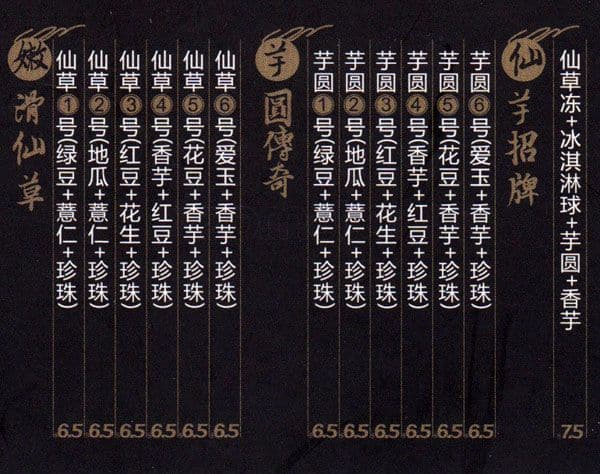 嫩滑仙草
仙草1号(绿豆+薏仁+珍珠) 6.5
仙草2号(地瓜+薏仁+珍珠) 6.5
仙草3号(红豆+花生+珍珠) 6.5
仙草4号(香芋+红豆+珍珠) 6.5
仙草5号(花豆+香芋+珍珠) 6.5
仙草6号(爱玉+香芋+珍珠) 6.5
芋圓傳奇
芋圆1号(绿豆+薏仁+珍珠) 6.5
芋圆2号(地瓜+薏仁+珍珠) 6.5
芋圆3号(红豆+花生+珍珠) 6.5
芋圆4号(香芋+红豆+珍珠) 6.5
芋圆5号(花豆+香芋+珍珠) 6.5
芋圆6号(爱玉+香芋+珍珠) 6.5
仙芋招牌
仙草冻+冰淇淋球+芋圆+香芋 7.5